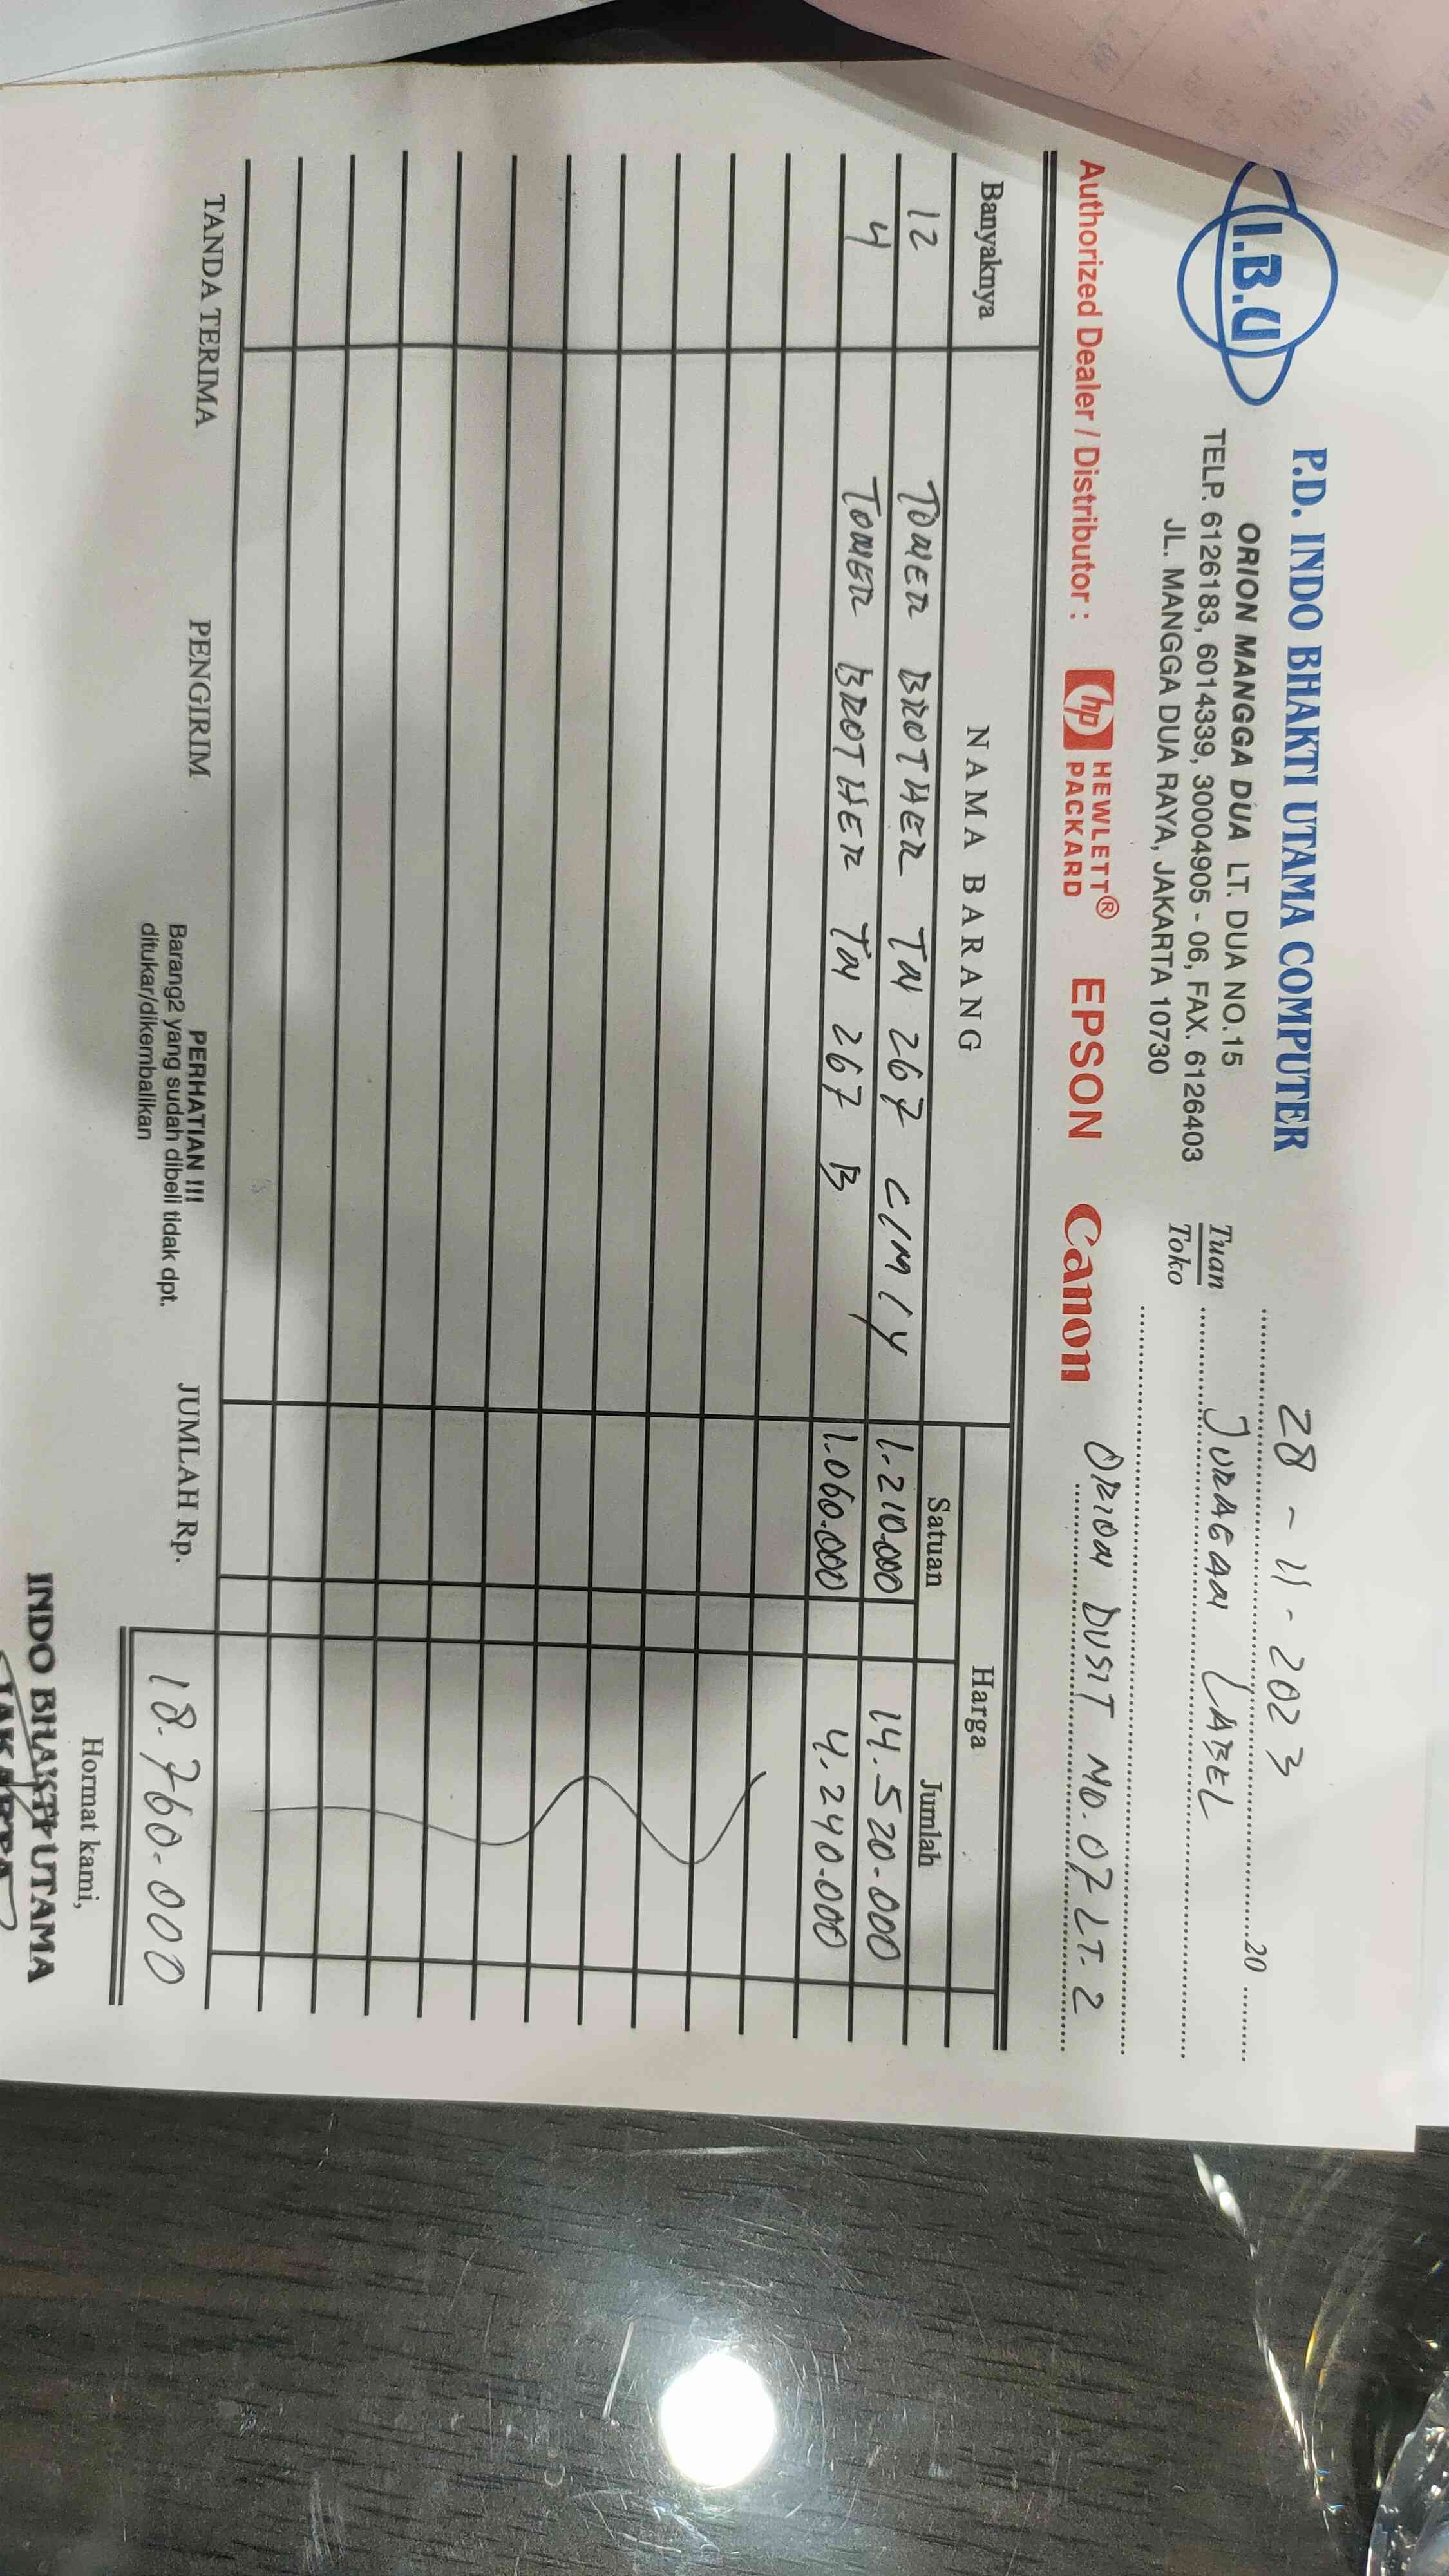 I.B.U
P.D. INDO BHAKTI UTAMA COMPUTER
ORION MANGGA DUA LT. DUA NO.15
TELP. 6126183, 6014339, 30004905 - 06, FAX. 6126403
JL. MANGGA DUA RAYA, JAKARTA 10730
28 - 11 - 2023
20
Tuan
Toko
JURAGAN LABEL
Authorized Dealer / Distributor : hp HEWLETT® PACKARD EPSON Canon
ORION DUSIT NO. 07 LT. 2
Banyaknya NAMA BARANG Harga
Satuan Jumlah
12 TONER BROTHER TN 267 C/M/Y 1.210.000 14.520.000
4 TONER BROTHER TN 267 B 1.060.000 4.240.000
TANDA TERIMA PENGIRIM JUMLAH Rp. 18.760.000
PERHATIAN !!!
Barang2 yang sudah dibeli tidak dpt.
ditukar/dikembalikan
Hormat kami,
INDO BHAKTI UTAMA